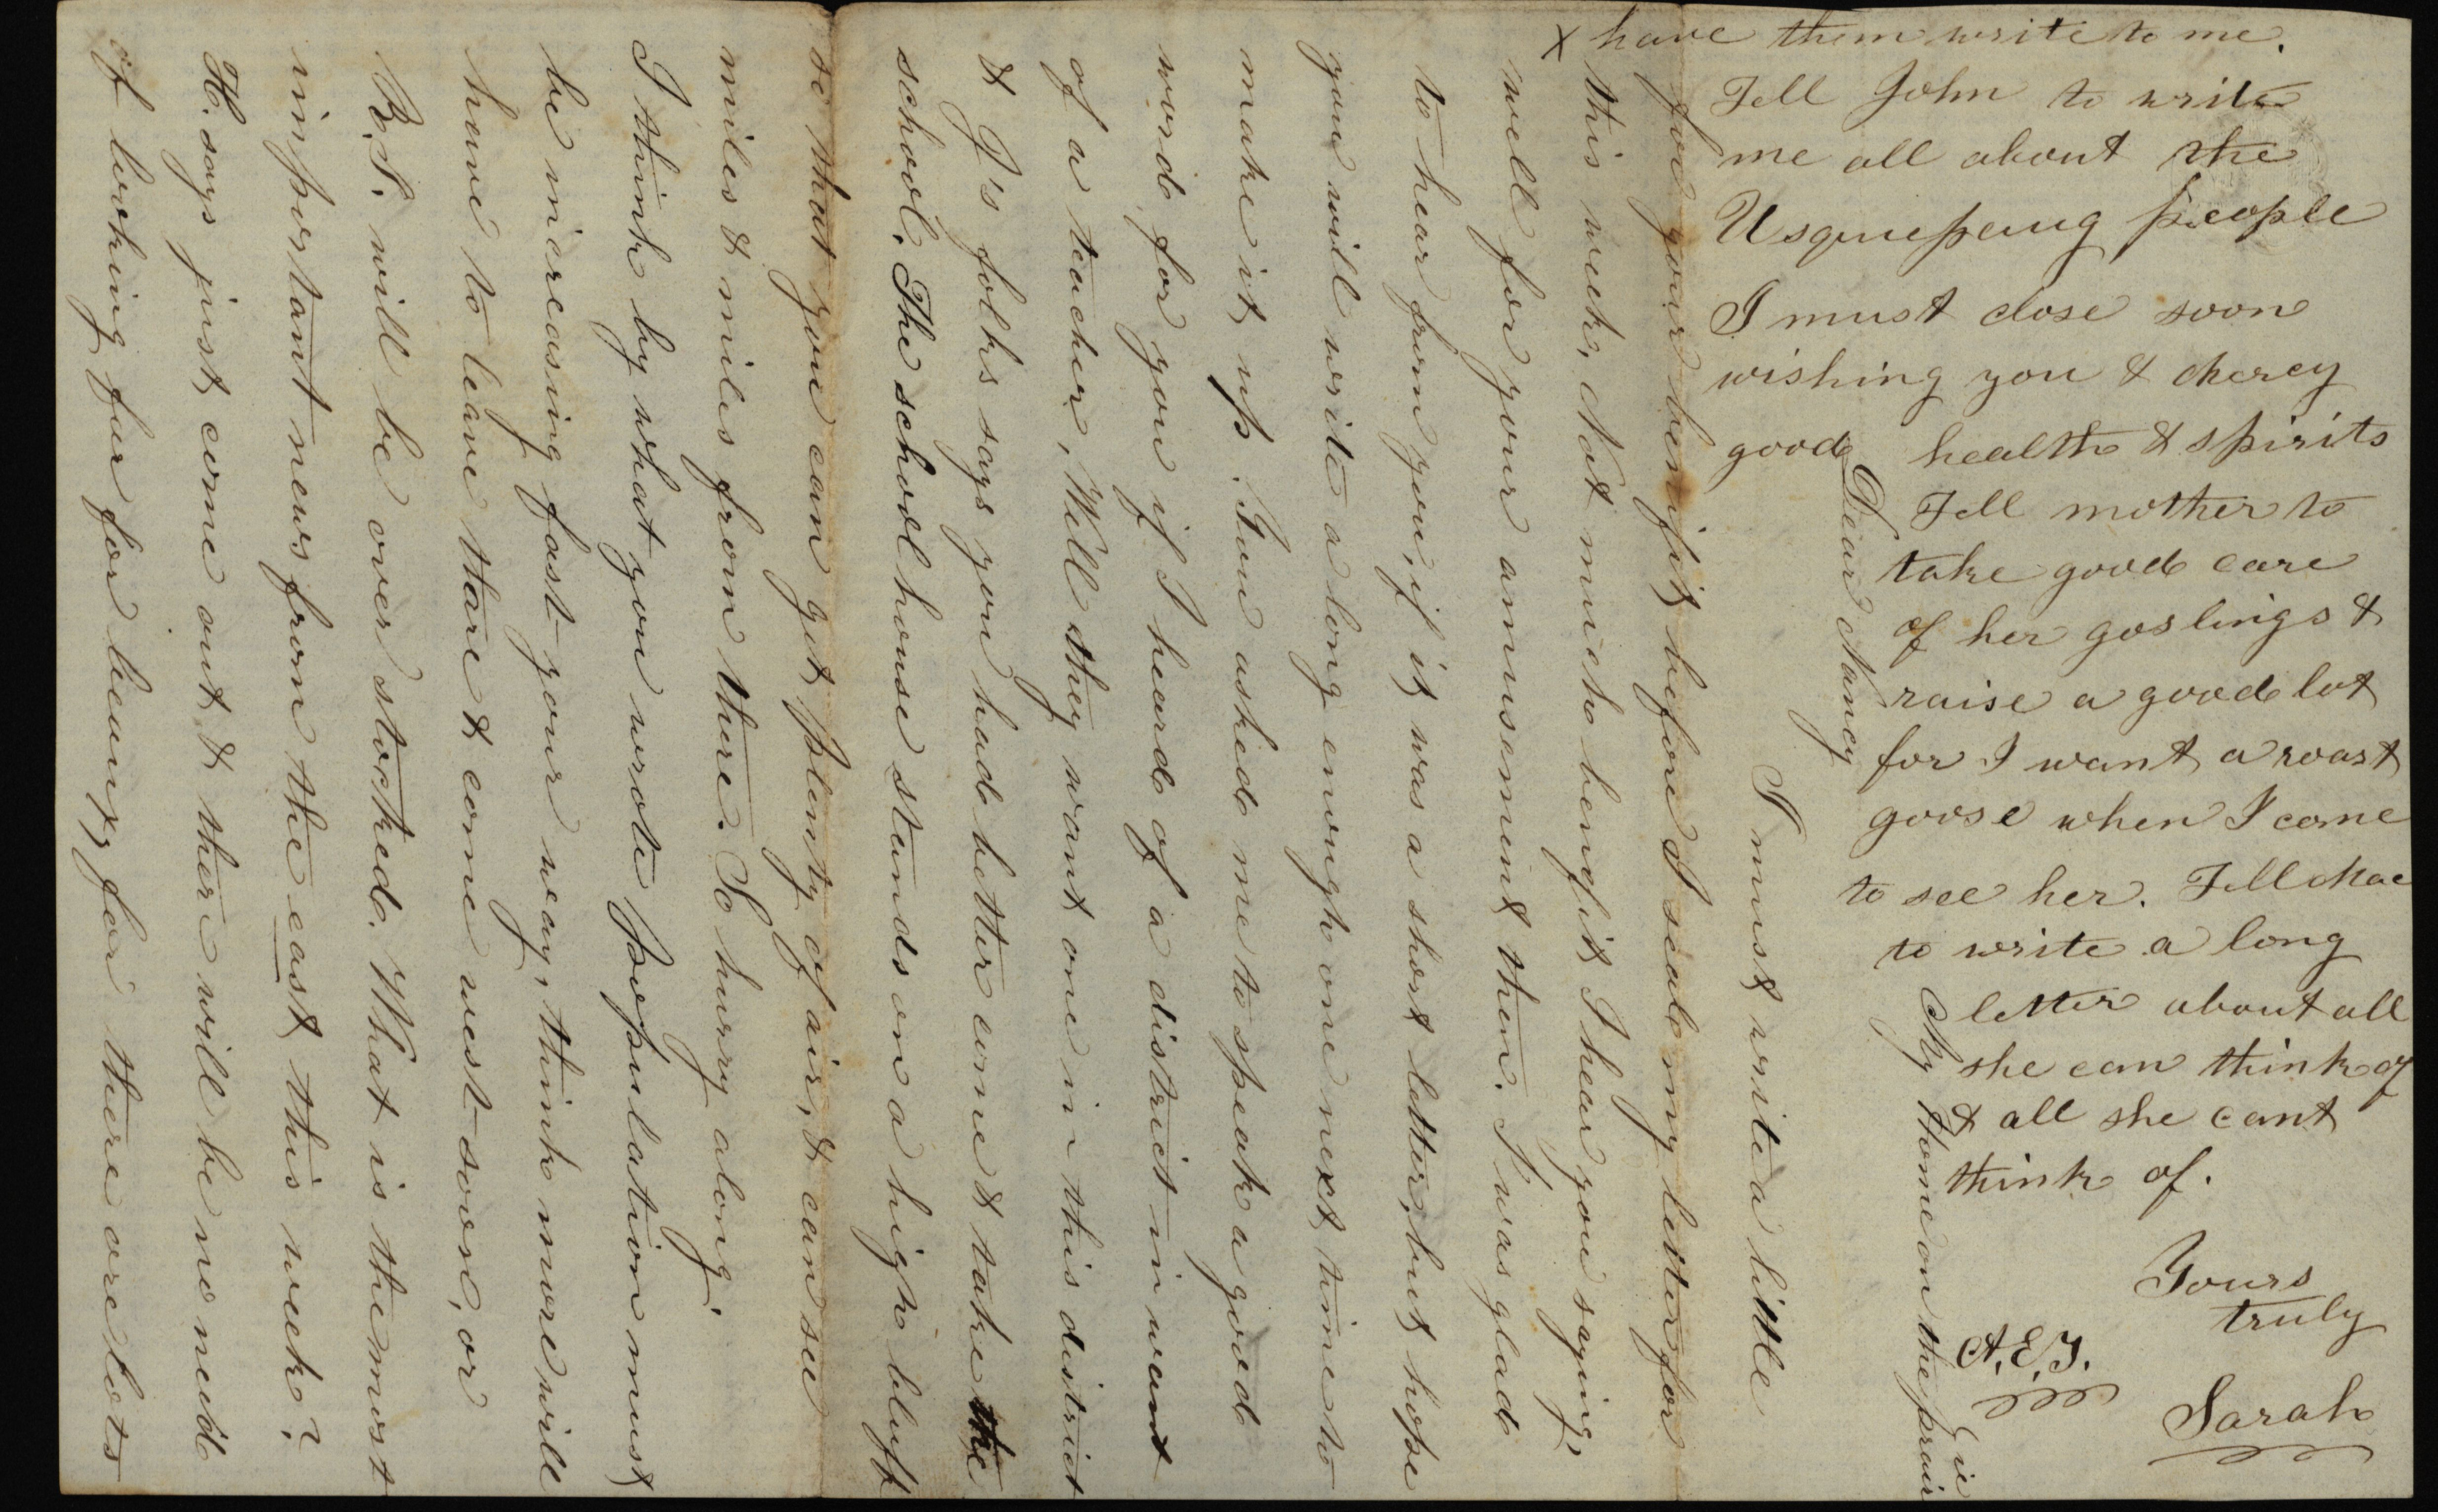 x have them write to me.
Tell John to write
me all about the
Usquepaug people
I must close soon
wishing you & Mercy
good health & spirits
Tell mother to
take good care
of her goslings &
raise a good lot
for I want a roast
goose when I come
to see her. Tell Mae
to write a long
letter about all
she can think of
& all she cant
think of.
Yours
truly
A.E.T.
Sarah
My Home on the prairie
Dear Nancy
I must write a little
for your benifit before I seal my letter for
this week, Not much benefit I hear you saying,
well for your amusement then. I was glad
to hear from you, if it was a short letter, but hope
you will write a long enough one next time to
make it up. You asked me to speak a good
word for you if I heard of a district in want
of a teacher, Well they want one in this district
& J's folks says you had better come & take the
school. The school house stands on a high bluff
so that you can get plenty of air, & can see
miles & miles from there. So hurry along.
I think by what you wrote population must
be increasing fast your way, think more will
have to leave there & come west soon, or
R.I. will be over stocked. What is the most
important news from the east this week?
H. says just come out & there will be no need
of looking fur for beaux, for there are lots